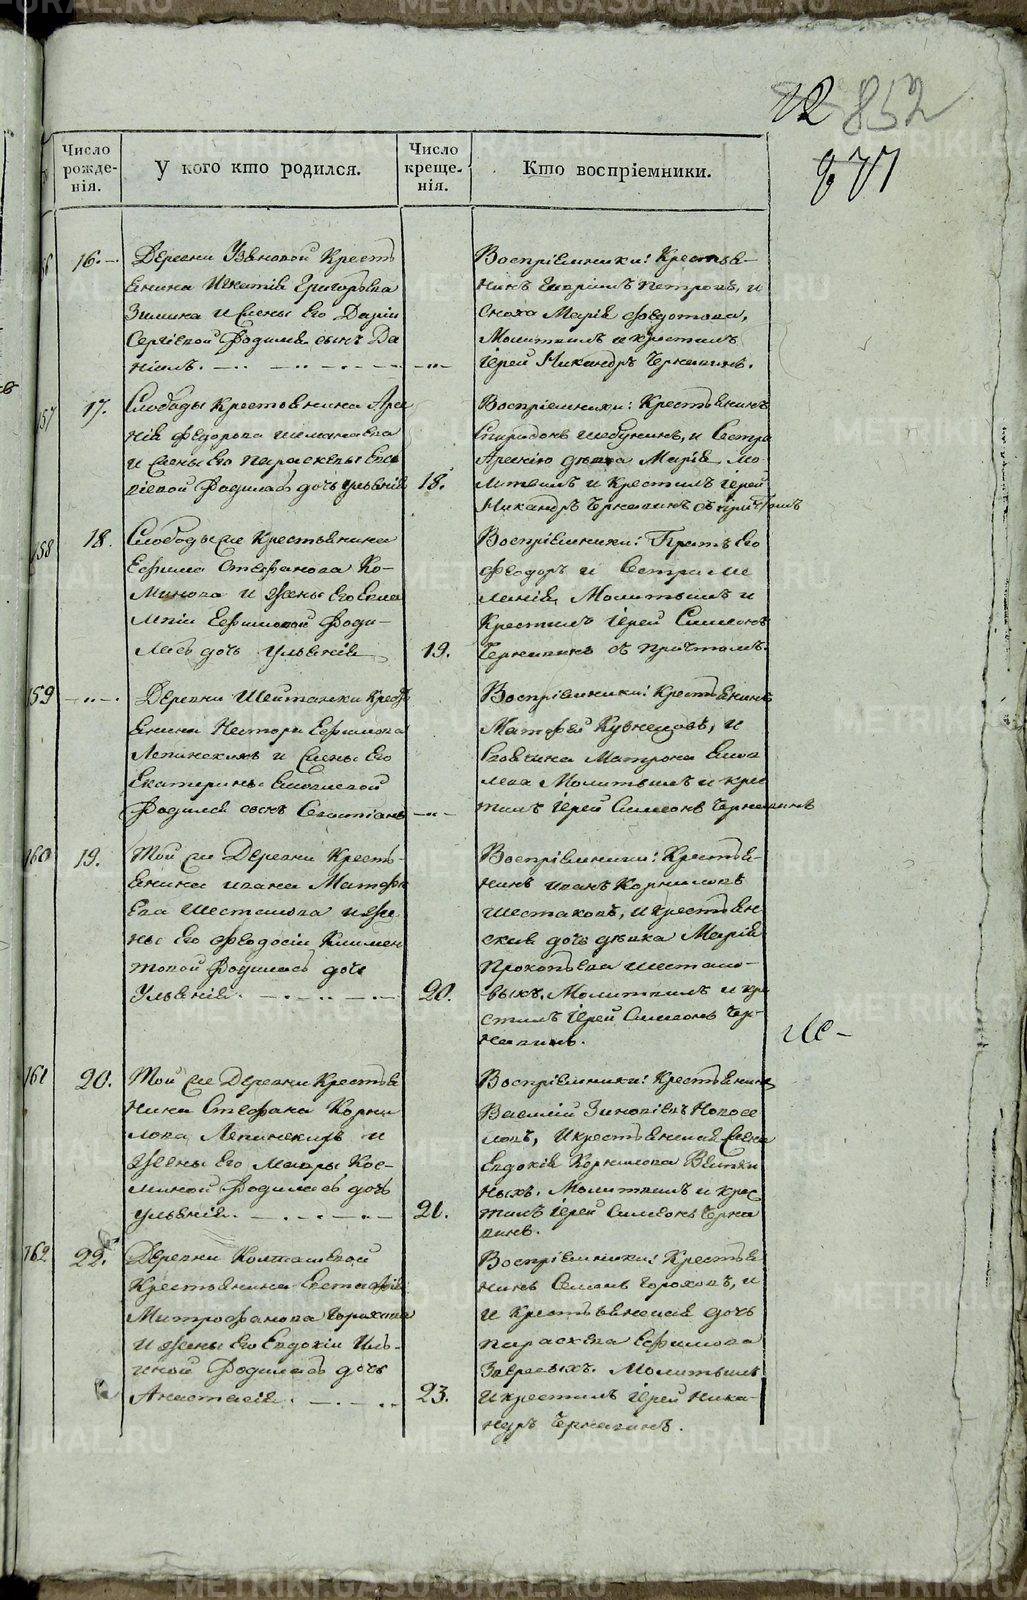 852
Число рожденія.
У кого кто родился.
Число крещенія.
Кто воспріемники.
16.
Деревни Узяновой Кресть
янина Игнатія Григорьева
Зимина и жены Его Даріи
Сергіевой Родился сынъ Да
ніилъ.
Воспріемники: Крестья-
нинъ Гавріилъ Петровъ, и
сноха Марія Федотова,
Молитвилъ и крестилъ
Іерей Никандръ Чернавинъ.
157
17.
Слободы крестьянина Арсе
нія Федорова
и жены Его Параскевы
Родилась дочь Ульянія
18.
Воспріемники: Крестьянинъ
Спиридонъ Шебунинъ, и Сестра
Арсенію дѣвка Марія Мо
литвилъ и Крестилъ Іерей
Никандръ Чернавинъ съ причтомъ
158
18.
Слободы же Крестьянина
Ефима Стефанова Ко-
минова и жены Его Евла
мпіи Ефимовой Роди-
лась дочь Ульянія
19.
Воспріемники: Братъ Его
Феодоръ и Сестра Ме
ланія, Молитвилъ и
Крестилъ Іерей Симеонъ
Чернавинъ съ Причтомъ.
159
Деревни Шайтанки Кресть
янина Нестора Ефимова
Лепинскихъ и жены Его
Екатерины
Родился сынъ Севастіанъ
Воспріемники: Крестьянинъ
Матфей Кузнецовъ, и
Матрона
Молитвилъ и кре
стилъ Іерей Симеонъ Чернавинъ
160
19.
Той же Деревни Кресть-
янина Ивана Матфе
ева Шестакова и же
ны Его Феодосіи Климен
товой Родилась дочь
Ульянія.
20.
Воспріемники: Крестья-
нинъ Иванъ Корниловъ
Шестаковъ, и крестьян
ская дочь дѣвка Марія
Прокопьева Шестако-
выхъ. Молитвилъ и кре
стилъ Іерей Симеонъ Чер-
навинъ.
161
20.
Той же Деревни Крестья
нина Стефана Корни
лова Лепинскихъ и
жены Его Мавры Кос-
миной Родилась дочь
Ульянія.
21.
Воспріемники: Крестьянинъ
Василій Зиновіевъ Новосе
ловъ, и крестьянская жена
Евдокія Корнилова
Молитвилъ и крес
тилъ Іерей Симеонъ Черна
винъ.
162
22.
Деревни Колташевой
Крестьянина Евстафія
Митрофанова Горохова
и жены Его Евдокіи Иль-
иной Родилась дочь
Анастасія.
23.
Воспріемники: Крестья
нинъ Семенъ Гороховъ, и
и Крестьянская дочь
Параскева Ефимова
Зверевыхъ. Молитвилъ
и крестилъ Іерей Ника-
ндръ Чернавинъ.
METRIKI.GASO-URAL.RU